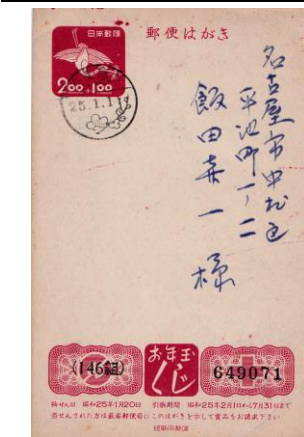 日本郵便
郵便はがき
200+1.00
25.1.1
名古屋市中村区
平池町一ノ二
飯田喜一様
(146組)
お年玉くじ
649071
抽せん日 昭和25年1月20日 引換期間 昭和25年2月1日から7月31日まで
当せんされた方は最寄郵便局にこのはがきを示して賞品をお請求下さい